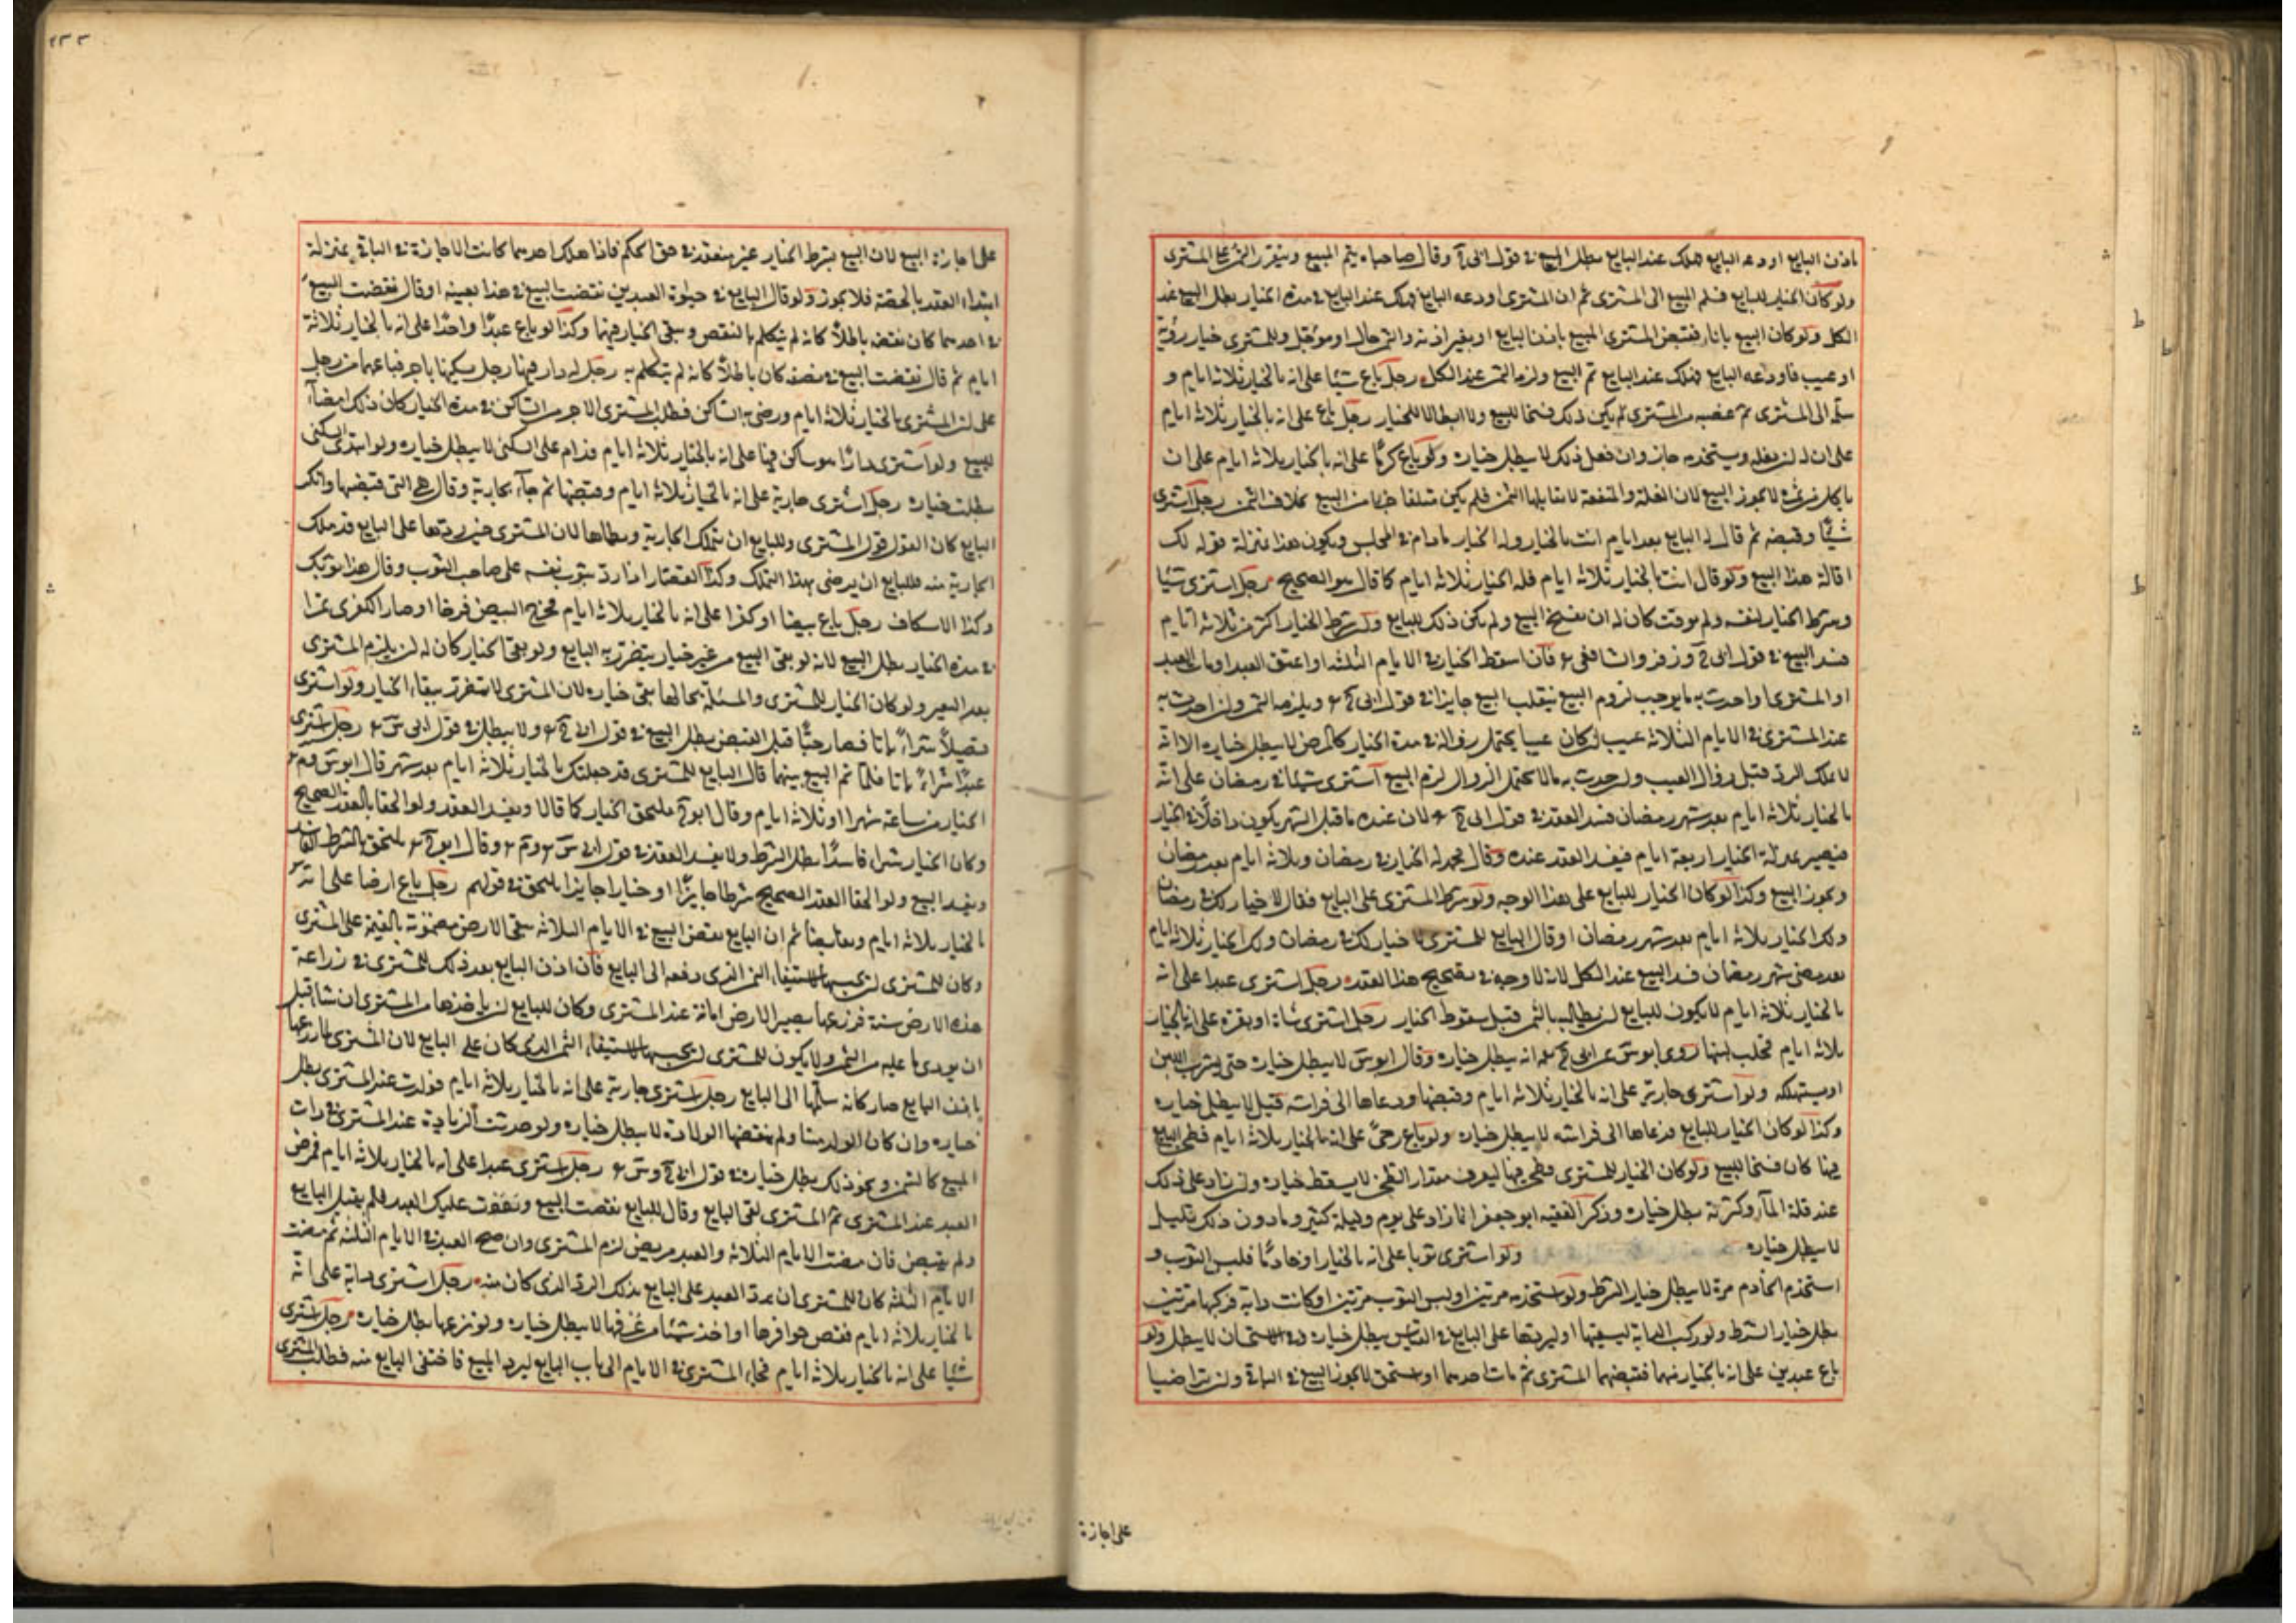 باذن البايع اودعه البايع فهلك عند البايع بطل البيع في قول ابي ح وقال صاحباه يتم البيع ويتقرر الثمن على المشتري
ولو كان الخيار للبايع فسلم المبيع الى المشتري ثم ان المشتري اودعه البايع فهلك عند البايع في مدة الخيار بطل البيع عند
الكل ولو كان البيع باتا فقبض المشتري المبيع باذن البايع او بغير اذنه والثمن حال او مؤجل وللمشتري خيار رؤية
او عيب فاودعه البايع فهلك عند البايع تم البيع ولزمه الثمن عند الكل رجل باع شيئا على انه بالخيار ثلاثة ايام و
سلمه الى المشتري ثم غصبه من المشتري لم يكن ذلك فسخا للبيع ولا ابطالا للخيار رجل باع على انه بالخيار ثلاثة ايام
على ان له ان يغله ويستخدمه جاز وان فعل ذلك لا يبطل خياره ولو باع كرما على انه بالخيار ثلاثة ايام على ان
ياكل من ثمره لا يجوز البيع لان الغلة والمنفعة لا يقابلها الثمن فلم يكن متلفا جزا من المبيع بخلاف الثمر رجل اشترى
شيئا وقبضه ثم قال له البايع بعد ايام انت بالخيار وله الخيار مادام في المجلس ويكون هذا بمنزلة قوله لك
اقالة هذا البيع ولو قال انت بالخيار ثلاثة ايام فله الخيار ثلاثة ايام كما قال هو الصحيح رجل اشترى شيئا
وشرط الخيار لنفسه ولم يوقت كان له ان يفسخ البيع ولم يكن ذلك للبايع ولو شرط الخيار اكثر من ثلاثة ايام
فسد البيع في قول ابي ح وزفر والشافعي فان اسقط الخيار في الايام الثلثة او اعتق العبد او مات العبد
او المشتري او احدث به ما يوجب لزوم البيع ينقلب البيع جايزا في قول ابي ح ويلزمه الثمن وان احدث به
عند المشتري في الايام الثلاثة عيب ان كان عيبا يحتمل زواله في مدة الخيار كالمرض لا يبطل خياره الا انه
لا يملك الرد قبل زوال العيب وان حدث به ما لا يحتمل الزوال لزم البيع اشترى شيئا في رمضان على انه
بالخيار ثلاثة ايام بعد شهر رمضان فسد العقد في قول ابي ح لان عنده ما قبل الشهر يكون داخلا في الخيار
فيصير مدة الخيار اربعة ايام فيفسد العقد عنده وقال محمد له الخيار في رمضان وثلاثة ايام بعد رمضان
ويجوز البيع وكذا لو كان الخيار للبايع على هذا الوجه ولو شرط المشتري على البايع فقال لا خيار لك في رمضان
ولك الخيار ثلاثة ايام بعد شهر رمضان او قال البايع للمشتري لا خيار لك في رمضان ولك الخيار ثلاثة ايام
بعد مضي شهر رمضان فسد البيع عند الكل لانه لا وجه في تصحيح هذا العقد رجل اشترى عبدا على انه
بالخيار ثلاثة ايام لا يكون للبايع ان يطالبه بالثمن قبل سقوط الخيار رجل اشترى شاة او بقرة على انه بالخيار
ثلاثة ايام فحلب لبنها روى ابو س عن ابي ح انه يبطل خياره وقال ابو س لا يبطل خياره حتى يشرب اللبن
او يستهلكه ولو اشترى جارية على انه بالخيار ثلاثة ايام وقبضها ودعاها الى فراشه قيل لا يبطل خياره
وكذا لو كان الخيار للبايع فدعاها الى فراشه لا يبطل خياره ولو باع رحى على انه بالخيار ثلاثة ايام فطحن البايع
فيها كان فسخا للبيع ولو كان الخيار للمشتري فطحن فيها ليعرف مقدار الطحن لا يسقط خياره وان زاد على ذلك
عند قلة الماء وكثرته يبطل خياره وذكر الفقيه ابو جعفر ان ما زاد على يوم وليلة كثير وما دون ذلك قليل
لا يبطل خياره ولو اشترى ثوبا على انه بالخيار او خادما فلبس الثوب و
استخدم الخادم مرة لا يبطل خيار الشرط ولو استخدمه مرتين او لبس الثوب مرتين او كانت دابة فركبها مرتين
بطل خيار الشرط ولو ركب الدابة ليسقيها او ليردها على البايع في القياس يبطل خياره وفي الاستحسان لا يبطل ولو
باع عبدين على انه بالخيار فيهما فقبضهما المشتري ثم مات احدهما او استحق لا يجوز البيع في الباقي وان تراضيا
على اجازة
٢٣٣
على اجازة البيع لان البيع بشرط الخيار غير منعقد في حق الحكم فاذا هلك احدهما كانت الاجازة في الباقي بمنزلة
ابتداء العقد بالحصة فلا يجوز ولو قال البايع في حيوة العبدين نقضت البيع في هذا بعينه او قال نقضت البيع
في احدهما كان نقضه باطلا كانه لم يتكلم بالنقض وبقي الخيار فيهما وكذا لو باع عبدا واحدا على انه بالخيار ثلاثة
ايام ثم قال نقضت البيع في نصفه كان باطلا كانه لم يتكلم به رجل له دار فيها رجل يسكنها باجر فباعها من رجل
على ان المشتري بالخيار ثلاثة ايام ورضي به الساكن فطلب المشتري الاجر من الساكن في مدة الخيار كان ذلك امضاء
للبيع ولو اشترى دارا هو ساكن فيها على انه بالخيار ثلاثة ايام فدام على السكنى لا يبطل خياره ولو ابتدى السكنى
بطلت خياره رجل اشترى جارية على انه بالخيار ثلاثة ايام وقبضها ثم جاء بجارية وقال هي التي قبضها وانكر
البايع كان القول قول المشتري وللبايع ان يتملك الجارية ويطاها لان المشتري حين ردها على البايع قد ملك
الجارية منه فللبايع ان يرضى بهذا التملك وكذا القصار اذا رد ثوب نفسه على صاحب الثوب وقال هذا ثوبك
وكذا الاسكاف رجل باع بيضا او كفرا على انه بالخيار ثلاثة ايام فخرج البيض فرخا او صار الكفرى تمرا
في مدة الخيار بطل البيع لانه لو بقي البيع من غير خيار يتضرر به البايع ولو بقي الخيار كان له ان يلزم المشتري
بعد التغير ولو كان الخيار للمشتري والمسئلة بحالها بقي خياره لان المشتري لا يتضرر ببقاء الخيار ولو اشترى
قصيلا شراء باتا فصار حبا قبل القبض بطل البيع في قول ابي ح ولا يبطل في قول ابي س رجل اشترى
عبدا شراء باتا فلما تم البيع بينهما قال البايع للمشتري قد جعلتك بالخيار ثلاثة ايام بعد شهر قال ابو س وم
الخيار من ساعته شهرا او ثلاثة ايام وقال ابو ح يلتحق الخيار كما قالا ويفسد العقد ولو الحقا بالعقد الصحيح
وكان الخيار شراء فاسدا بطل الشرط ولا يفسد العقد في قول ابي س وم وقال ابو ح يلتحق الشرط الفاسد
ويفسد البيع ولو الحقا العقد الصحيح شرطا جايزا او خيارا جايزا يلتحق في قولهم رجل باع ارضا على انه
بالخيار ثلاثة ايام وتقابضا ثم ان البايع نقض البيع في الايام الثلاثة يبقى الارض مضمونة بالقيمة على المشتري
وكان للمشتري ان يحبسها لاستيفاء الثمن الذي دفعه الى البايع فان اذن البايع بعد ذلك للمشتري في زراعة
هذه الارض سنة فزرعها يصير الارض امانة عند المشتري وكان للبايع ان ياخذها من المشتري ان شاء قبل
ان يودي ما عليه من الثمن ولا يكون للمشتري ان يحبسها لاستيفاء الثمن الذي كان على البايع لان المشتري لما زرعها
باذن البايع صار كانه سلمها الى البايع رجل اشترى جارية على انه بالخيار ثلاثة ايام فولدت عند المشتري بطل
خياره وان كان الولد ميتا ولم ينقصها الولادة لا يبطل خياره ولو حدثت الزيادة عند المشتري في ذات
المبيع كالسمن ونحو ذلك بطل خياره في قول ابي ح وس رجل اشترى عبدا على انه بالخيار ثلاثة ايام فمرض
العبد عند المشتري ثم المشتري لقي البايع وقال للبايع نقضت البيع ونقضت عليك العبد فلم يقبل البايع
ولم يقبض فان مضت الايام الثلاثة والعبد مريض لزم المشتري وان صح العبد في الايام الثلثة ثم مضت
الايام الثلثة كان للمشتري ان يرد العبد على البايع بذلك الرد الذي كان منه رجل اشترى دابة على انه
بالخيار ثلاثة ايام فقص حوافرها او اخذ شيئا من عرفها لا يبطل خياره ولو نزعها بطل خياره رجل اشترى
شيئا على انه بالخيار ثلاثة ايام فجاء المشتري في الايام الى باب البايع ليرد المبيع فاختفى البايع منه فطلب المشتري